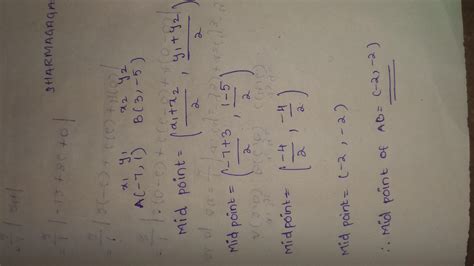 SHARMAGAGAGA
x₁ y₁ x₂ y₂
A(-7, 1) B(3, -5)
Mid point = (x₁+x₂/2, y₁+y₂/2)
Mid point = (-7+3/2, 1-5/2)
Mid point = (-4/2, -4/2)
Mid point = (-2, -2)
∴ Mid point of AB = (-2, -2)